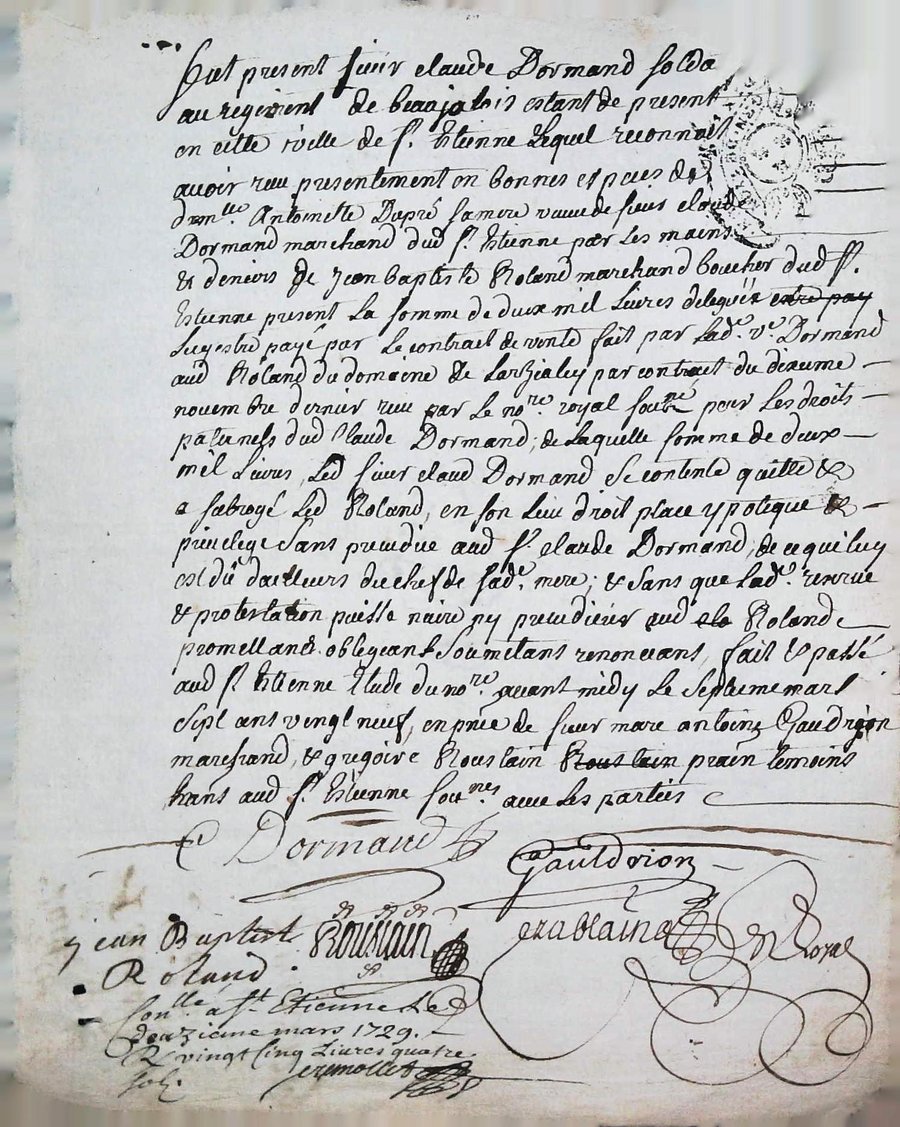 Fut present sieur claude Dormand solda
au regiment de beaujolois estant de present
en cette ville de St. Etienne Lequel reconnait
avoir reçu presentement en bonnes especes de
dmlle Antoinette Dupré sa mere veuve de sieur claude
Dormand marchand dud St. Etienne par les mains
& deniers de Jean baptiste Roland marchand boucher dud St.
Estienne present La somme de deux mil Livres deleguée entre pay
payé par Le contrait de vente fait par lade. ve. Dormand
aud Roland du domaine de par contrait du dixeme
novembre dernier reçu par Le nore. royal sousné pour Les droits
paternels dud Claude Dormand, de Laquelle somme de deux
mil Livres, Led sieur claud Dormand se contente quitte &
a subrogé Led Roland, en son Lieu droit place ypoteque &
privilege sans prejudice aud Sr. claude Dormand, de ce qui luy
est dû dailleurs du chef de sade. mere; & sans que Lade. reserve
& protestation puisse nuire ny prejudicier aud Roland
promettant obligeant soumetans renoncans, fait & passé
aud St Etienne Etude du nore. avant midy Le septieme mars
sept cens vingt neuf, en pnce de sieur marc antoine Gaudrion
marchand, & gregoire Roustain Roustain temoins
hans aud St. Etienne sousnes avec Les parties
Dormand
Gauldrion
jean Baptist Roustain
Roland
Royal
Conlle a St. Etienne Le
douzieme mars 1729.
R vingt cinq Livres quatre
sols.